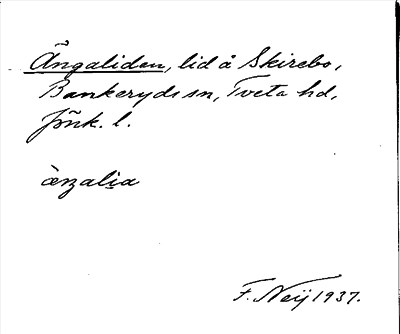 Ängaliden, lid å Skirebo,
Bankeryds sn, Tveta hd,
Jönk. l.
æŋalia
F. Neij 1937.